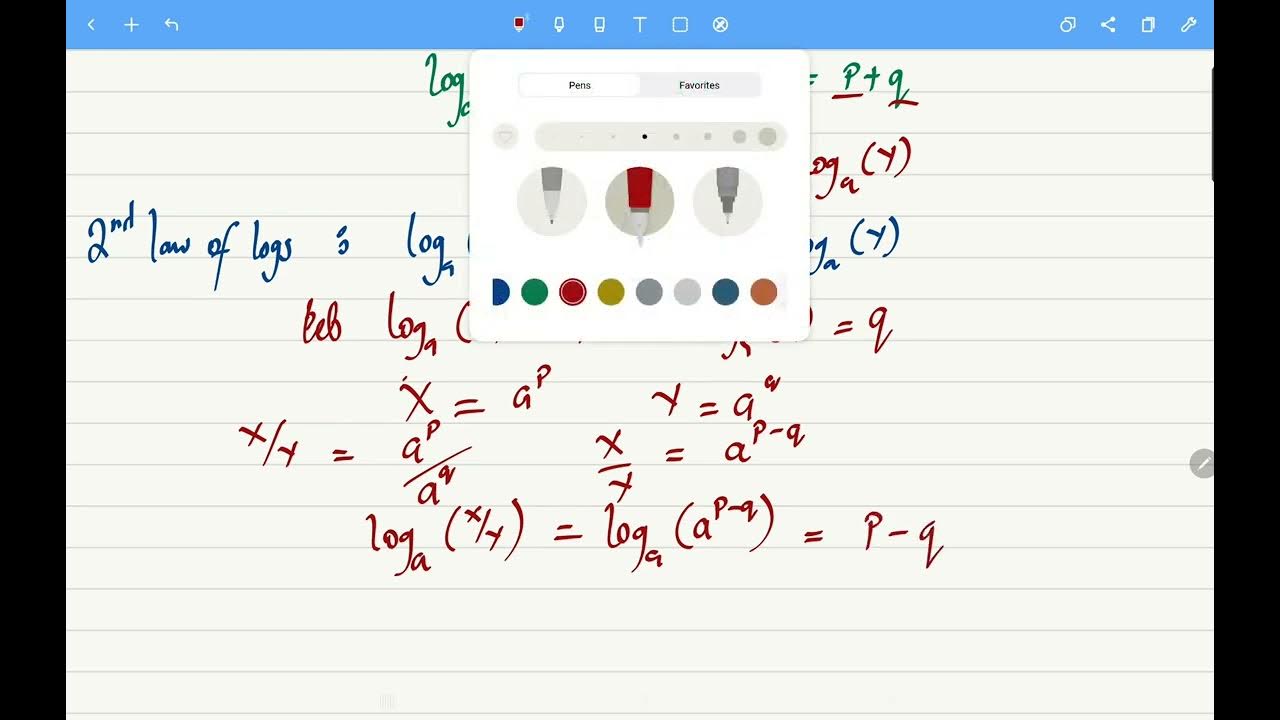 T
Pens Favorites
log = P + q
log_a (Y)
2nd law of logs : log_a ( log_a (Y)
log_a ( ) = q
X = a^P Y = a^q
X/Y = a^P/a^q X/Y = a^(P-q)
log_a (X/Y) = log_a (a^(P-q)) = P - q